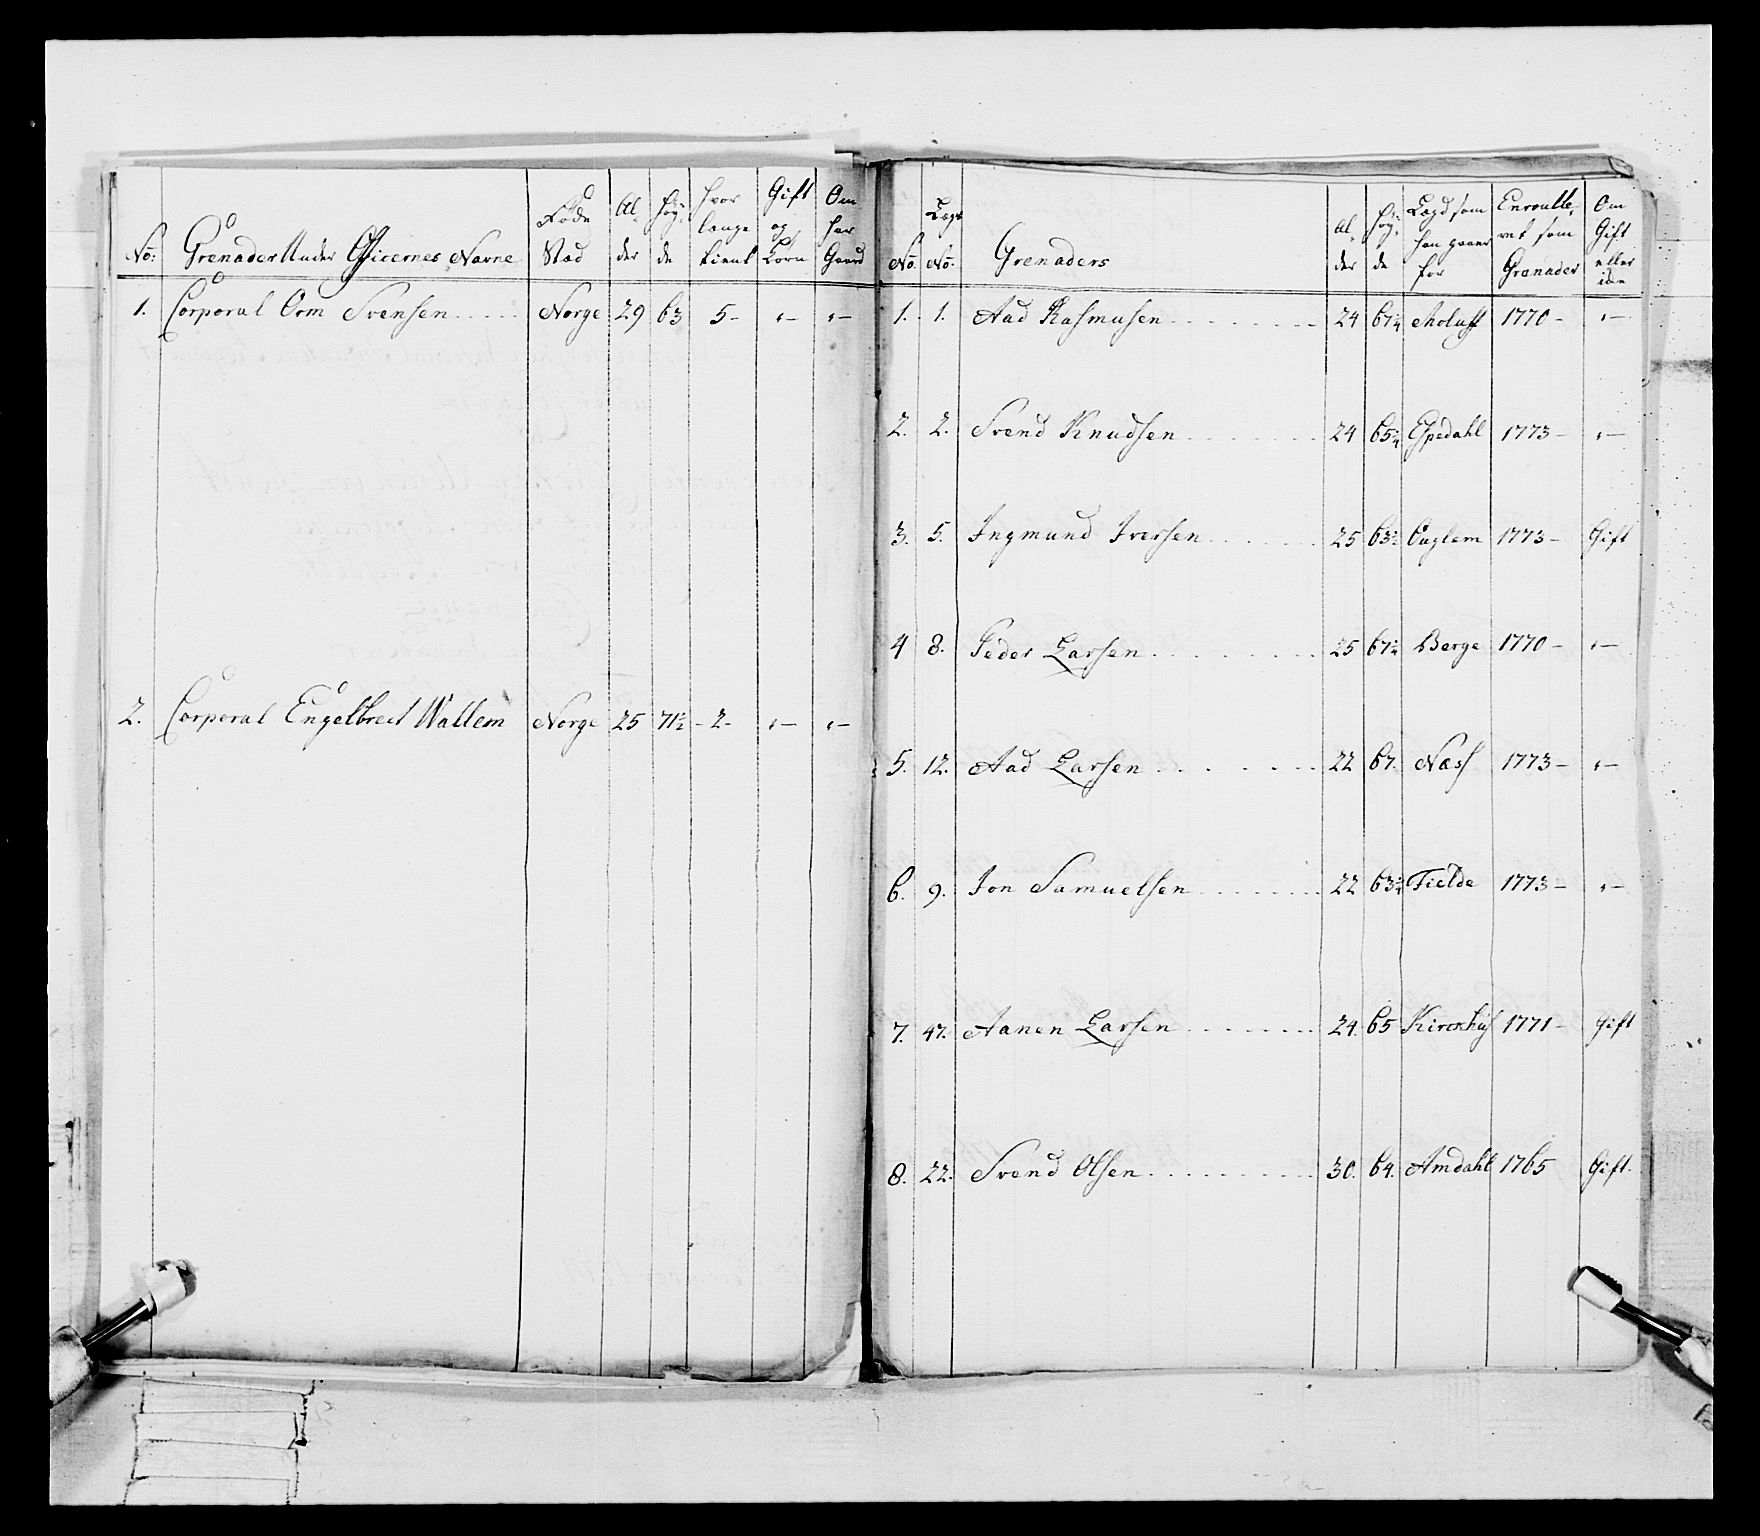 No: Grenadeer Under Officernes Navne Føde Stad Al- der Høy- de Hvor lange tient Gift og Børn Om har Gaard
1. Corporal Orm Svensen Norge 29 63 5- "- "-
2. Corporal Engelbrect Wallem Norge 25 71½ - 2- "- "-
No. Lægs No. Grenaders Al- der Høy- de Lægd som han gaaer for Enroulle- ret som Granader Om Gift eller
1. 1. Aad Rasmusen 24 67¼ 1770- "-
2. 2. Svend Knudsen 24 Espedahl 1773- "-
3. 5. Ingmund Iversen 25 63½ Øuglem 1773- Gift
4 8. Peder Larsen 25 Berge 1770- "-
5. 12. Aad Larsen 22 67. Næss 1773- "-
6. 9. Jon Samuelsen 22 Fielde 1773- "-
7. 47. Aanen Larsen 24. 65 1771- Gift
8. 22. Svend Olsen 30. 64. Amdahl 1765 Gift.